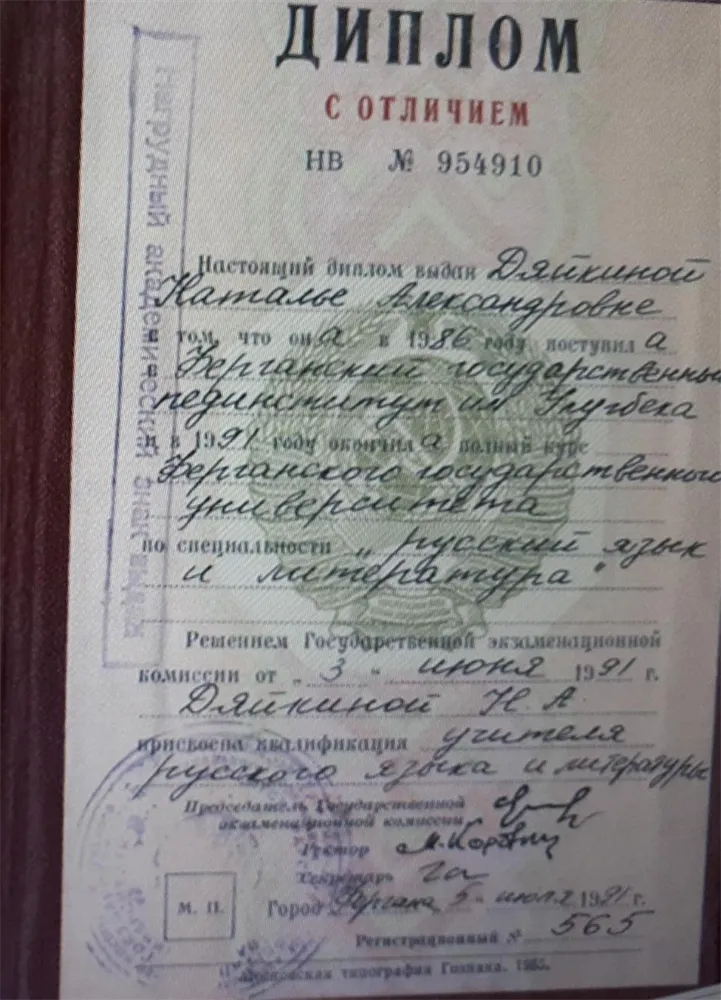 ДИПЛОМ
С ОТЛИЧИЕМ
НВ № 954910
Нагрудный академический знак выдан
Настоящий диплом выдан Дяйкиной
Наталье Александровне
том, что она в 1986 году поступила
Ферганский государственный
пединститут им Улугбека
и в 1991 году окончила полный курс
Ферганского государственный
университета
по специальности „русский язык
и литература"
Решением Государственной экзаменационной
комиссии от „3" июня 1991 г.
Дяйкиной Н. А
присвоена квалификация учителя
русского языка и литературы
Председатель Государственной
экзаменационной комиссии
Ректор
Секретарь
М. П.
Город Фергана 5 июля 1991 г.
Регистрационный № 565
Московская типография Гознака.